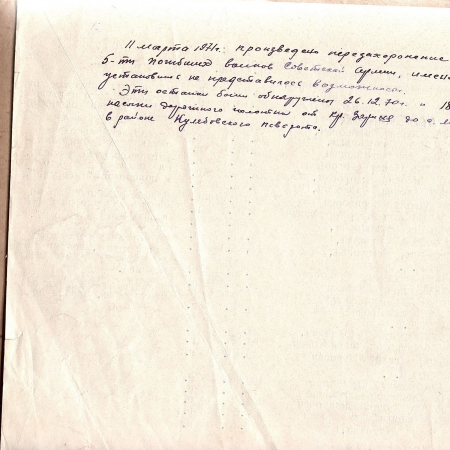 11 марта 1971г. произведено перезахоронение
5-ти погибших воинов Советской Армии, имена
установить не представилось возможности.
Эти останки были обнаружены 26.12.70г. и 18
насыпи дорожного полотна от Кр. Зорька до с.
в районе Кулебовского поворота.